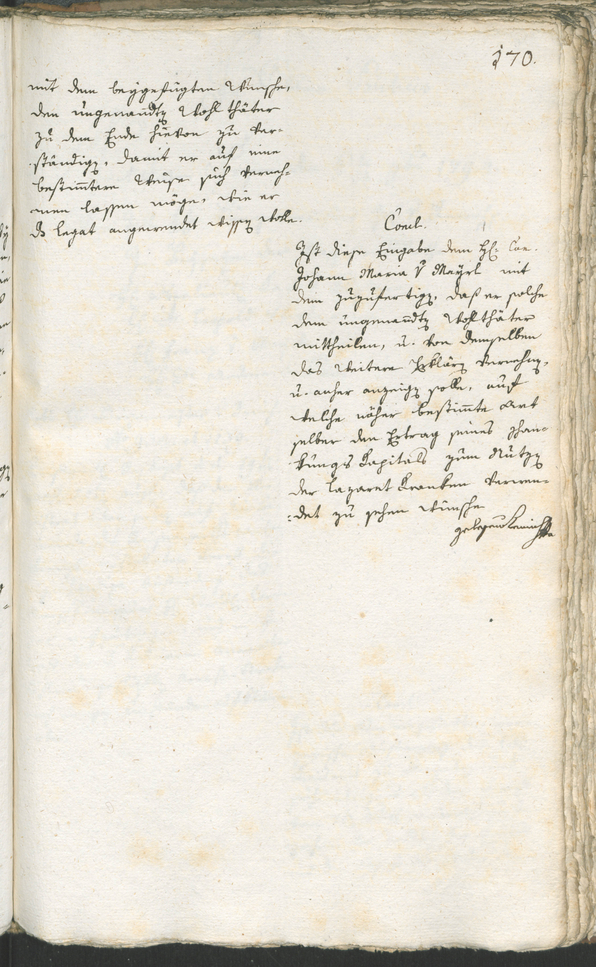 170.
mit dem beygefügten Wunsche,
den ungenandten Wohlthäter
zu dem Ende hievon zu ver-
ständigen, damit er auf eine
bestimtere Weise sich verneh-
men lassen möge, wie er
das Legat angewendet wissen wolle.
Concl.
Ist diese Eingabe dem H:
Johann Maria v Mayrl mit
dem zuzufertigen, daß er solche
dem ungenandten Wohlthäter
mittheilen, u. von demselben
das weitere Erklären vernehmen,
u. anher anzeigen solle, auf
welche näher bestimte Art
selber den Ertrag seines Schan-
kungs Kapitals zum Nutzen
der Lazaret Kranken verwen-
det zu sehen wünsche